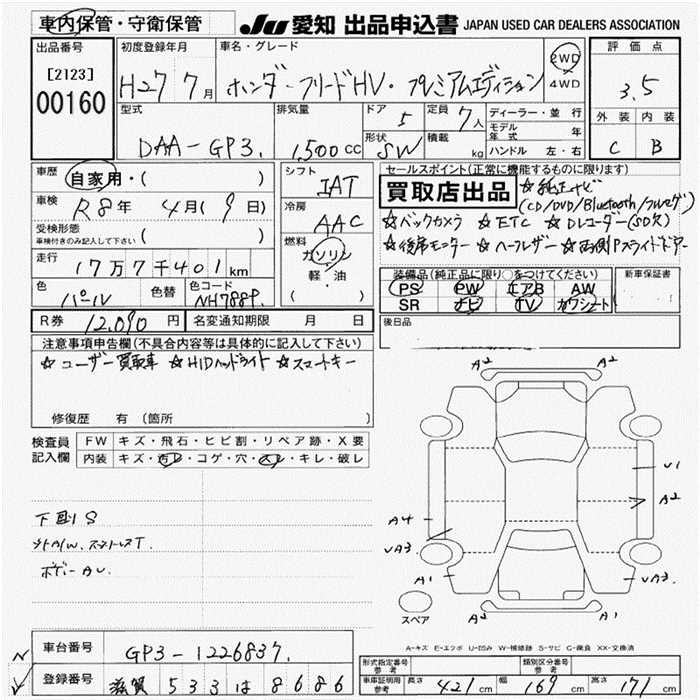 車内保管・守衛保管
JU 愛知 出品申込書 JAPAN USED CAR DEALERS ASSOCIATION
出品番号
[2123]
00160
初度登録年月
H27 7月
車名・グレード
ホンダ・フリードHV・プレミアムエディション
2WD
4WD
評価点
3.5
外装 内装
C B
型式
DAA-GP3.
排気量
1,500cc
ドア
5
形状
SW
定員
7人
積載
kg
ディーラー・並行
モデル年式 年
ハンドル 左・右
車歴
自家用・( )
車検
R8年 4月(9日)
受検形態
車検付きのみ記入して下さい ( )
走行
17万7千401km
色
パール
色替
色コード
NH788P.
シフト
IAT
冷房
AAC
燃料
ガソリン
軽・油
( )
セールスポイント(正常に機能するものに限ります)
買取店出品
☆純正ナビ
(CD/DVD/Bluetooth/フルセグ)
☆バックカメラ ☆ETC ☆Dレコーダー(SD欠)
☆後席モニター ☆ハーフレザー ☆両側Pスライドドアー
装備品(純正品に限り○をつけてください)
PS PW エアB AW
SR ナビ TV カワシート
新車保証書
後日品
R券 12,090円 名変通知期限 月 日
注意事項申告欄(不具合内容等は具体的に記入して下さい)
☆ユーザー買取車 ☆HIDヘッドライト ☆スマートキー
修復歴 有 (箇所
検査員
記入欄
FW キズ・飛石・ヒビ割・リペア跡・X要
内装 キズ・汚レ・コゲ・穴・スレ・キレ・破レ
下廻りS
ボデーAU.
A2 A2
U1
A2
A4
UA3.
A1
UA3.
A2 A1
スペア
A-キズ E-エクボ U-凹み W-補修跡 S-サビ C-腐食 XX-交換済
車台番号
GP3-1226837.
登録番号
滋賀 533 は 8686
形式指定番号
参考
類別区分番号
参考
車庫証明用
参考
長さ 421cm 幅 169cm 高さ 171cm